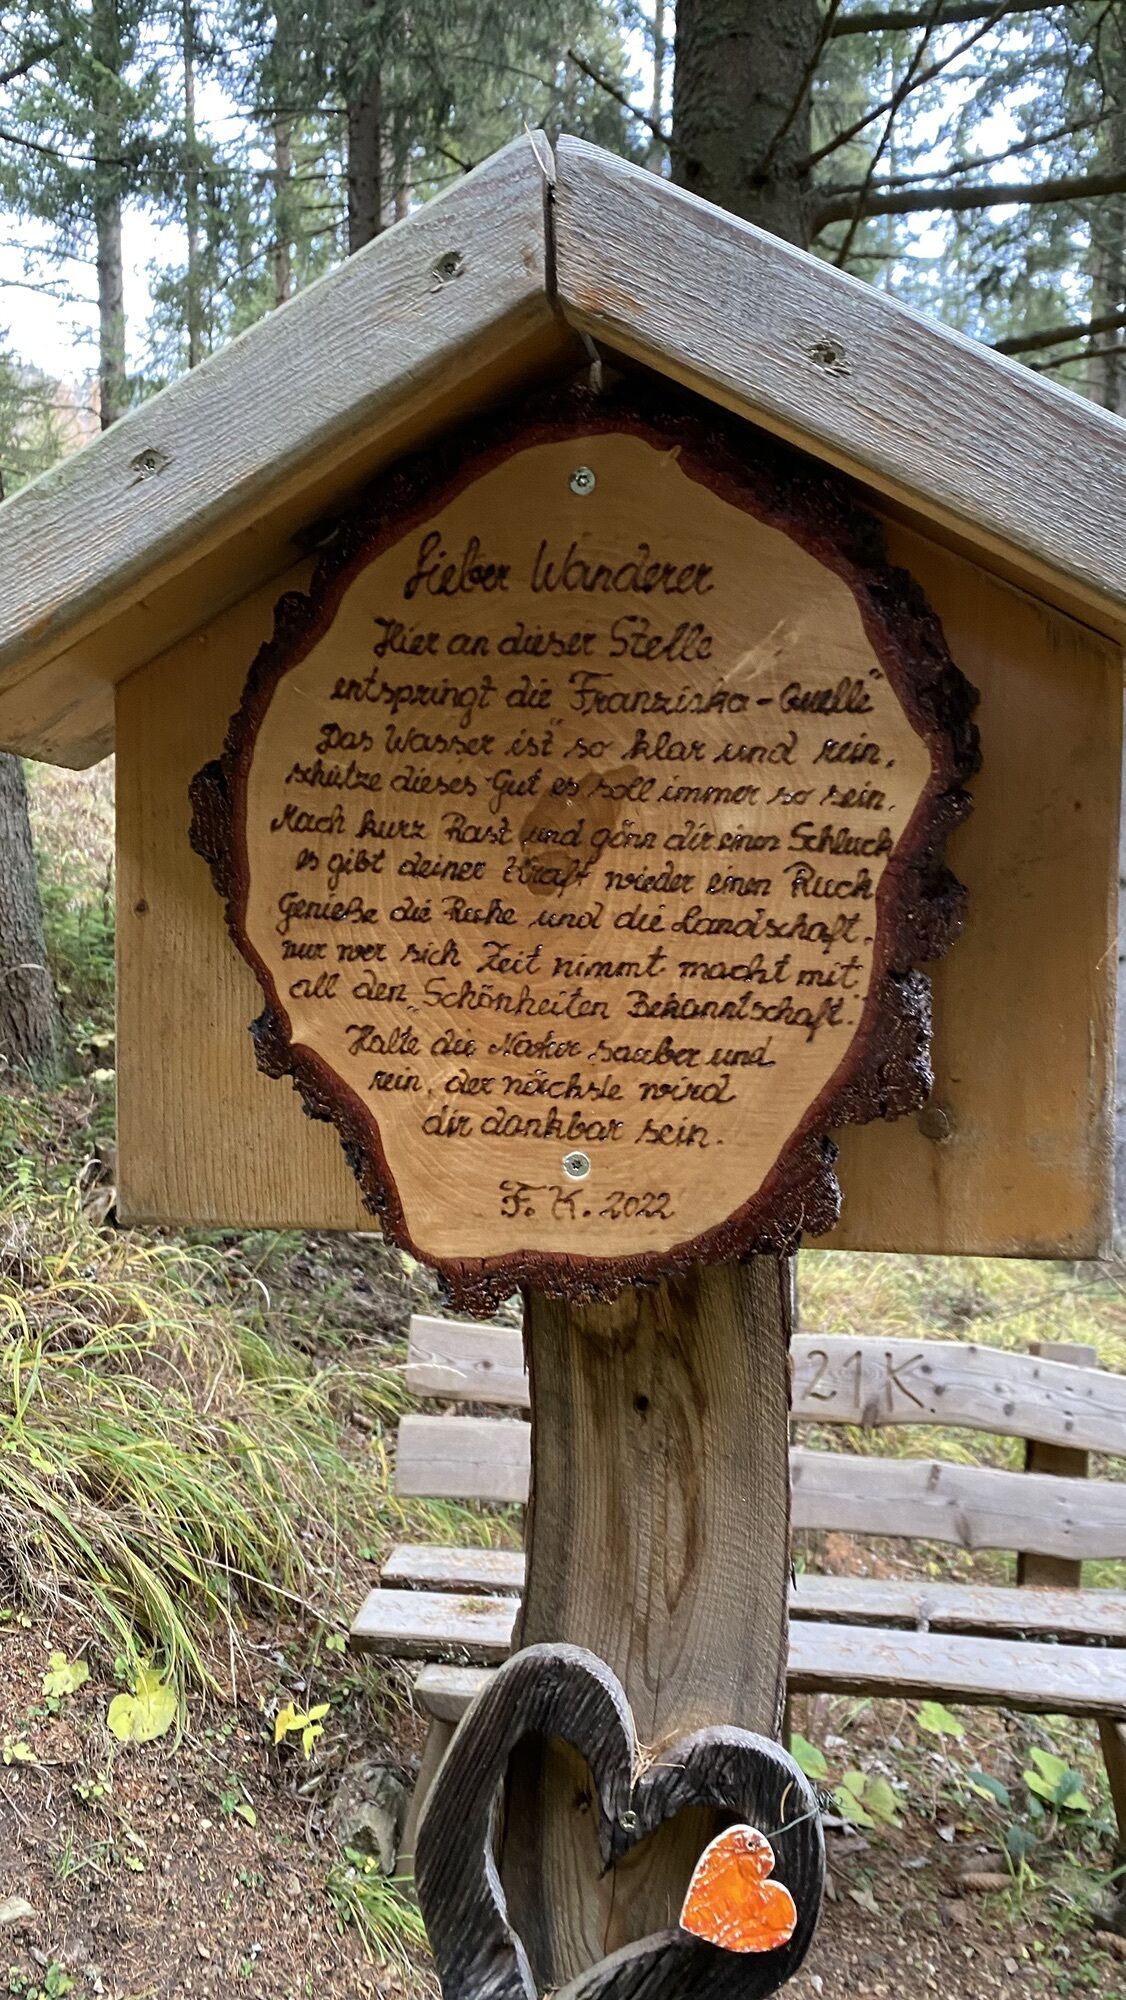 Lieber Wanderer
Hier an dieser Stelle
entspringt die "Franziska-Quelle"
Das Wasser ist so klar und rein,
schütze dieses Gut es soll immer so sein.
Mach kurz Rast und gönn dir einen Schluck
es gibt deiner Kraft wieder einen Ruck
Genieße die Ruhe und die Landschaft.
nur wer sich Zeit nimmt macht mit
all den "Schönheiten Bekanntschaft."
Halte die Natur sauber und
rein, der nächste wird
dir dankbar sein.
F. K. 2022
21K.